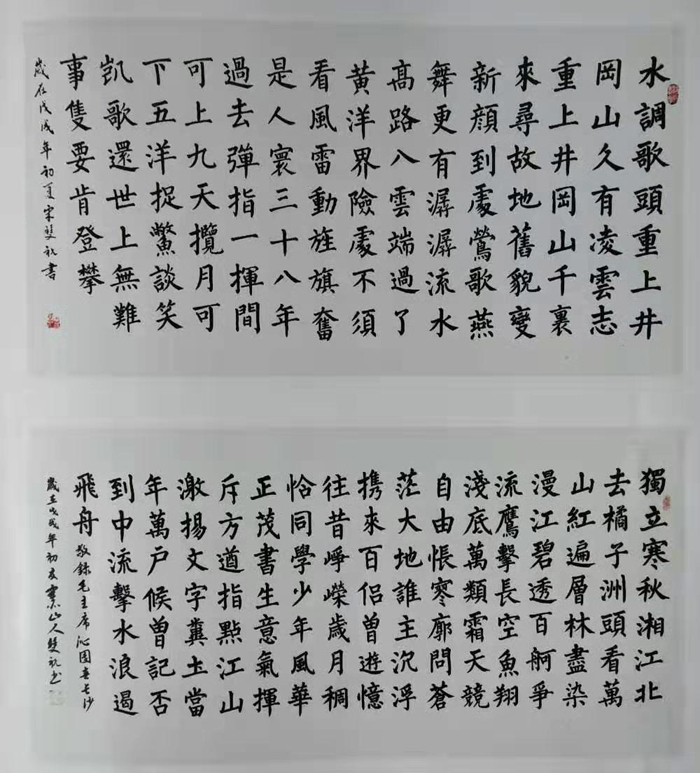 水調歌頭重上井
岡山久有凌雲志
重上井岡山千裏
來尋故地舊貌變
新顔到處鶯歌燕
舞更有潺潺流水
高路入雲端過了
黄洋界險處不須
看風雷動旌旗奮
是人寰三十八年
過去彈指一揮間
可上九天攬月可
下五洋捉鱉談笑
凱歌還世上無難
事隻要肯登攀
歲在戊戌年初夏宋雙礼書
獨立寒秋湘江北
去橘子洲頭看萬
山紅遍層林盡染
漫江碧透百舸爭
流鷹擊長空魚翔
淺底萬類霜天競
自由悵寒廓問蒼
茫大地誰主沉浮
携來百侣曾遊憶
往昔崢嶸歲月稠
恰同學少年風華
正茂書生意氣揮
斥方遒指點江山
激揚文字糞土當
年萬户候曾記否
到中流擊水浪遏
飛舟 敬錄毛主席沁園春長沙
歲在戊戌年初夏山人雙礼書